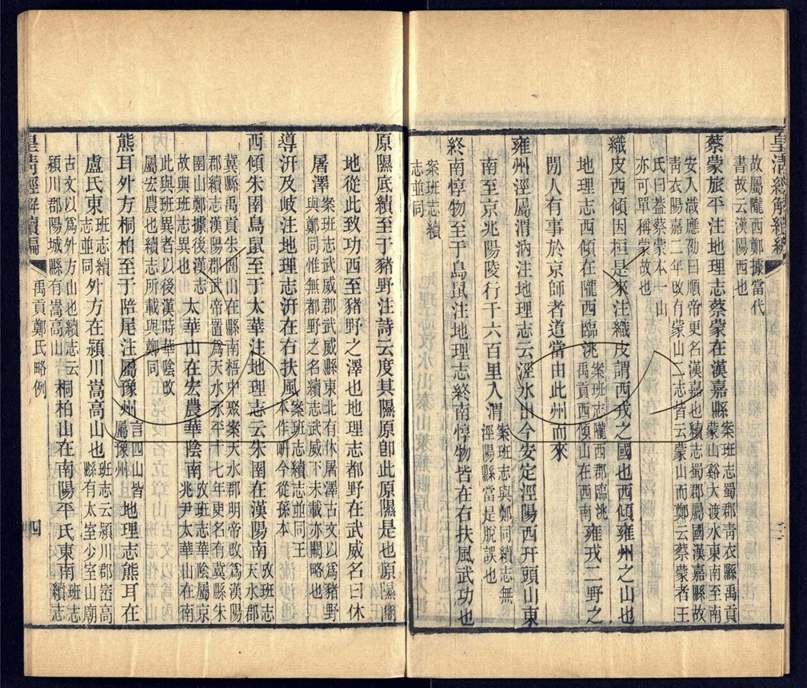 故屬隴西鄭據當代
書故云漢陽西也
蔡蒙旅平注地理志蔡蒙在漢嘉縣
案班志蜀郡青衣縣禹貢
蒙山谿大渡水東南至南
安入渽應劭曰順帝更名漢嘉也續志蜀郡屬國漢嘉縣故
青衣陽嘉二年改有蒙山二志皆云蒙山而鄭云蔡蒙者王
氏曰蓋蔡蒙本一山
亦可單稱蒙故也
織皮西傾因桓是來注織皮謂西戎之國也西傾雍州之山也
地理志西傾在隴西臨洮
案班志隴西郡臨洮
禹貢西傾山在西南
雍戎二野之
閒人有事於京師者道當由此州而來
雍州涇屬渭汭注地理志云涇水出今安定涇陽西幵頭山東
南至京兆陽陵行千六百里入渭
案班志與鄭同續志無
涇陽縣當是脫誤也
終南惇物至于鳥鼠注地理志終南惇物皆在右扶風武功也
案班志續
志並同
原隰厎績至于豬野注詩云度其隰原卽此原隰是也原隰豳
地從此致功西至豬野之澤也地理志都野在武威名曰休
屠澤
案班志武威郡武威縣東北有休屠澤古文以爲豬野
與鄭同惟無都野之名續志武威下未載亦闕略也
導汧及岐注地理志汧在右扶風
案班志續志並同王
本作岍今從孫本
西傾朱圉鳥鼠至于太華注地理志云朱圉在漢陽南
攷班志
天水郡
冀縣禹貢朱圉山在縣南梧中聚案天水郡明帝改爲漢陽
郡續志漢陽郡武帝置爲天水永平十七年更名有冀縣朱
圉山鄭據後漢志
故與班志異也
太華山在宏農華陰南
攷班志華陰屬京
兆尹太華山在南
此與班異者以後漢時華陰改
屬宏農也續志所載與鄭同
熊耳外方桐柏至于陪尾注屬豫州
言四山皆
屬豫州
地理志熊耳在
盧氏東
班志續
志並同
外方在潁川嵩高山也
班志云潁川郡崈高
縣有太室少室山廟
古文以爲外方山也續志云
潁川郡陽城縣有嵩高山
桐柏山在南陽平氏東南
班志
續志
皇清經解續編
禹貢鄭氏略例
四